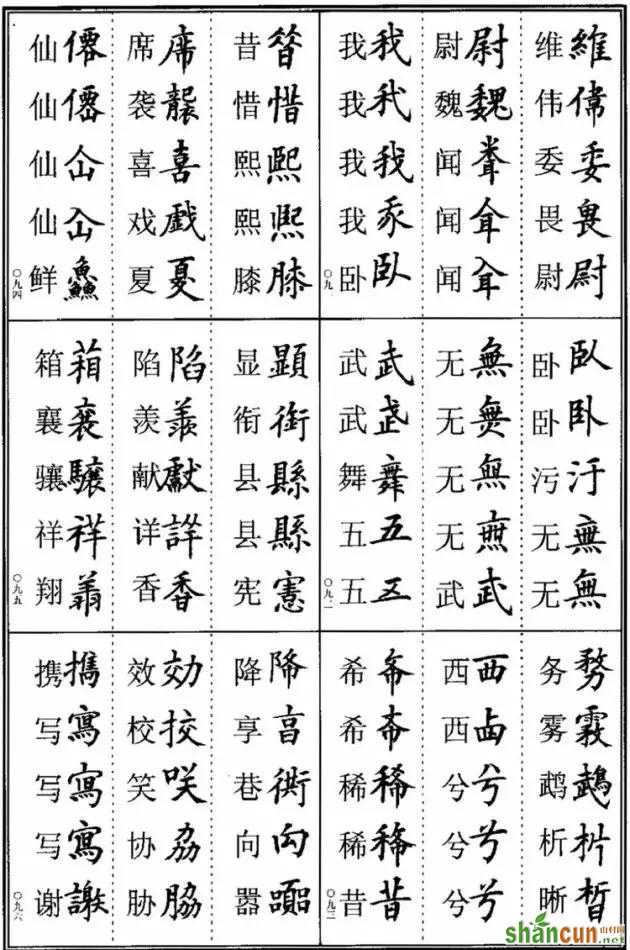 维維 伟偉 委委 畏畏 尉尉
尉尉 魏魏 闻 闻 闻
我我 我我 我我 我 卧臥
〇九一
卧臥 卧卧 污汙 无無 无無
无無 无無 无無 无 武武
武武 武 舞 五五 五五
〇九二
务務 雾霧 鹉鵡 析析 晰晳
西西 西卤 兮兮 兮兮 兮兮
希希 希 稀稀 稀 昔昔
〇九三
昔 惜惜 熙熙 熙熙 膝膝
席席 袭襲 喜喜 戏戲 夏夏
仙僊 仙僊 仙仚 仙仚 鲜鱻
〇九四
显顕 衔銜 县縣 县縣 宪憲
陷陷 羡羡 献獻 详詳 香香
箱箱 襄襄 骧驤 祥祥 翔
〇九五
降降 享亯 巷衖 向向 嚣嚣
效効 校挍 笑咲 协劦 胁脇
携攜 写寫 写寫 写寫 谢謝
〇九六
shancun 山村网